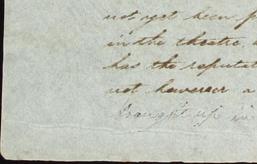 not yet been p
in the theatre,
has the reputat
not however a
brought up in